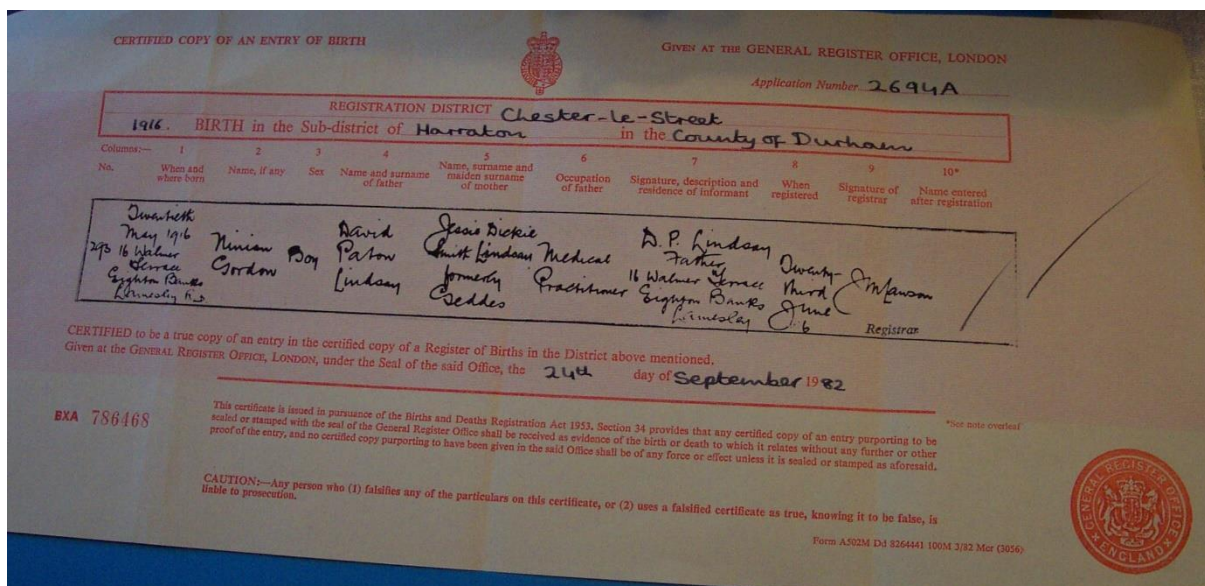 CERTIFIED COPY OF AN ENTRY OF BIRTH
GIVEN AT THE GENERAL REGISTER OFFICE, LONDON
Application Number 2694A
REGISTRATION DISTRICT Chester-le-Street
1916. BIRTH in the Sub-district of Harraton in the County of Durham
Columns:— 1 2 3 4 5 6 7 8 9 10*
No. When and where born
Name, if any
Sex
Name and surname of father
Name, surname and maiden surname of mother
Occupation of father
Signature, description and residence of informant
When registered
Signature of registrar
Name entered after registration
293
Twentieth
May 1916
16 Walmer
Terrace
Eighton Banks
Lamesley
Ninian
Gordon
Boy
David
Paton
Lindsay
Jessie Dickie
Smith Lindsay
formerly
Geddes
Medical
Practitioner
D. P. Lindsay
Father
16 Walmer Terrace
Eighton Banks
Lamesley
Twenty-
third
June
Registrar
CERTIFIED to be a true copy of an entry in the certified copy of a Register of Births in the District above mentioned.
Given at the GENERAL REGISTER OFFICE, LONDON, under the Seal of the said Office, the 24th day of September 1982
BXA 786468
This certificate is issued in pursuance of the Births and Deaths Registration Act 1953. Section 34 provides that any certified copy of an entry purporting to be
sealed or stamped with the seal of the General Register Office shall be received as evidence of the birth or death to which it relates without any further or other
proof of the entry, and no certified copy purporting to have been given in the said Office shall be of any force or effect unless it is sealed or stamped as aforesaid.
*See note overleaf
CAUTION:—Any person who (1) falsifies any of the particulars on this certificate, or (2) uses a falsified certificate as true, knowing it to be false, is
liable to prosecution.
Form A502M Dd 8264441 100M 3/82 Mcr (3056)
GENERAL REGISTER OFFICE
ENGLAND